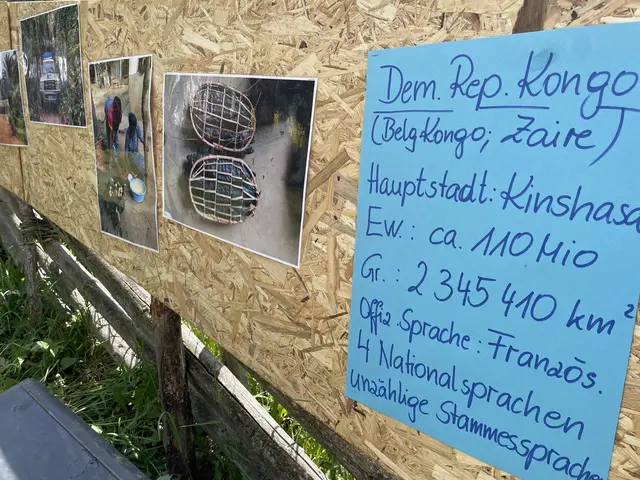 Dem. Rep. Kongo
(Belg. Kongo; Zaire)
Hauptstadt: Kinshasa
Ew.: ca. 110 Mio
Gr.: 2 345 410 km²
Offiz. Sprache: Französ.
4 Nationalsprachen
unzählige Stammessprachen